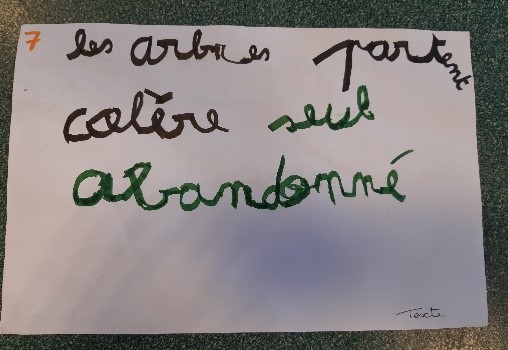 7 les arbres partent
colère seul
abandonné